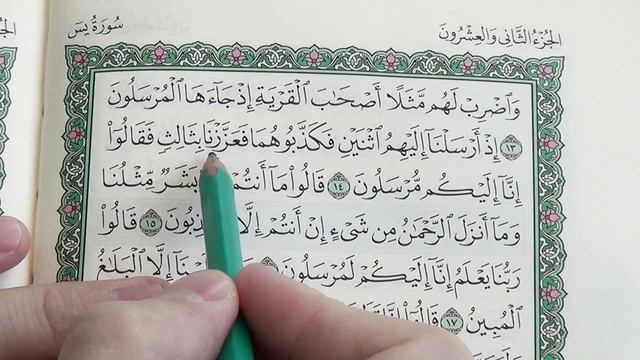 الجزء الثاني والعشرون
سورة يس
وَٱضْرِبْ لَهُم مَّثَلًا أَصْحَٰبَ ٱلْقَرْيَةِ إِذْ جَآءَهَا ٱلْمُرْسَلُونَ
١٣ إِذْ أَرْسَلْنَآ إِلَيْهِمُ ٱثْنَيْنِ فَكَذَّبُوهُمَا فَعَزَّزْنَا بِثَالِثٍ فَقَالُوٓا۟
إِنَّآ إِلَيْكُم مُّرْسَلُونَ ١٤ قَالُوا۟ مَآ أَنتُمْ بَشَرٌ مِّثْلُنَا
وَمَآ أَنزَلَ ٱلرَّحْمَٰنُ مِن شَىْءٍ إِنْ أَنتُمْ إِلَّا ١٥ قَالُوا۟
رَبُّنَا يَعْلَمُ إِنَّآ إِلَيْكُمْ لَمُرْسَلُونَ إِلَّا ٱلْبَلَٰغُ
ٱلْمُبِينُ ١٧ قَالُوٓا۟